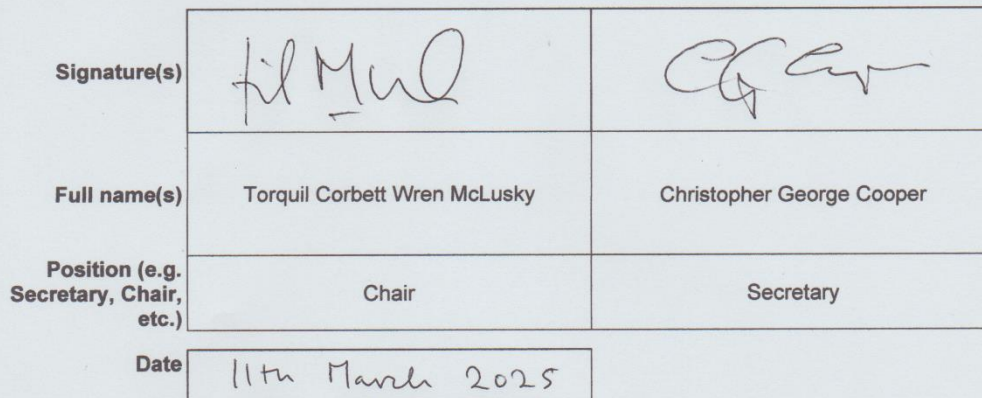 Signature(s)
Full name(s) Torquil Corbett Wren McLusky Christopher George Cooper
Position (e.g.
Secretary, Chair, Chair Secretary
etc.)
Date 11th March 2025